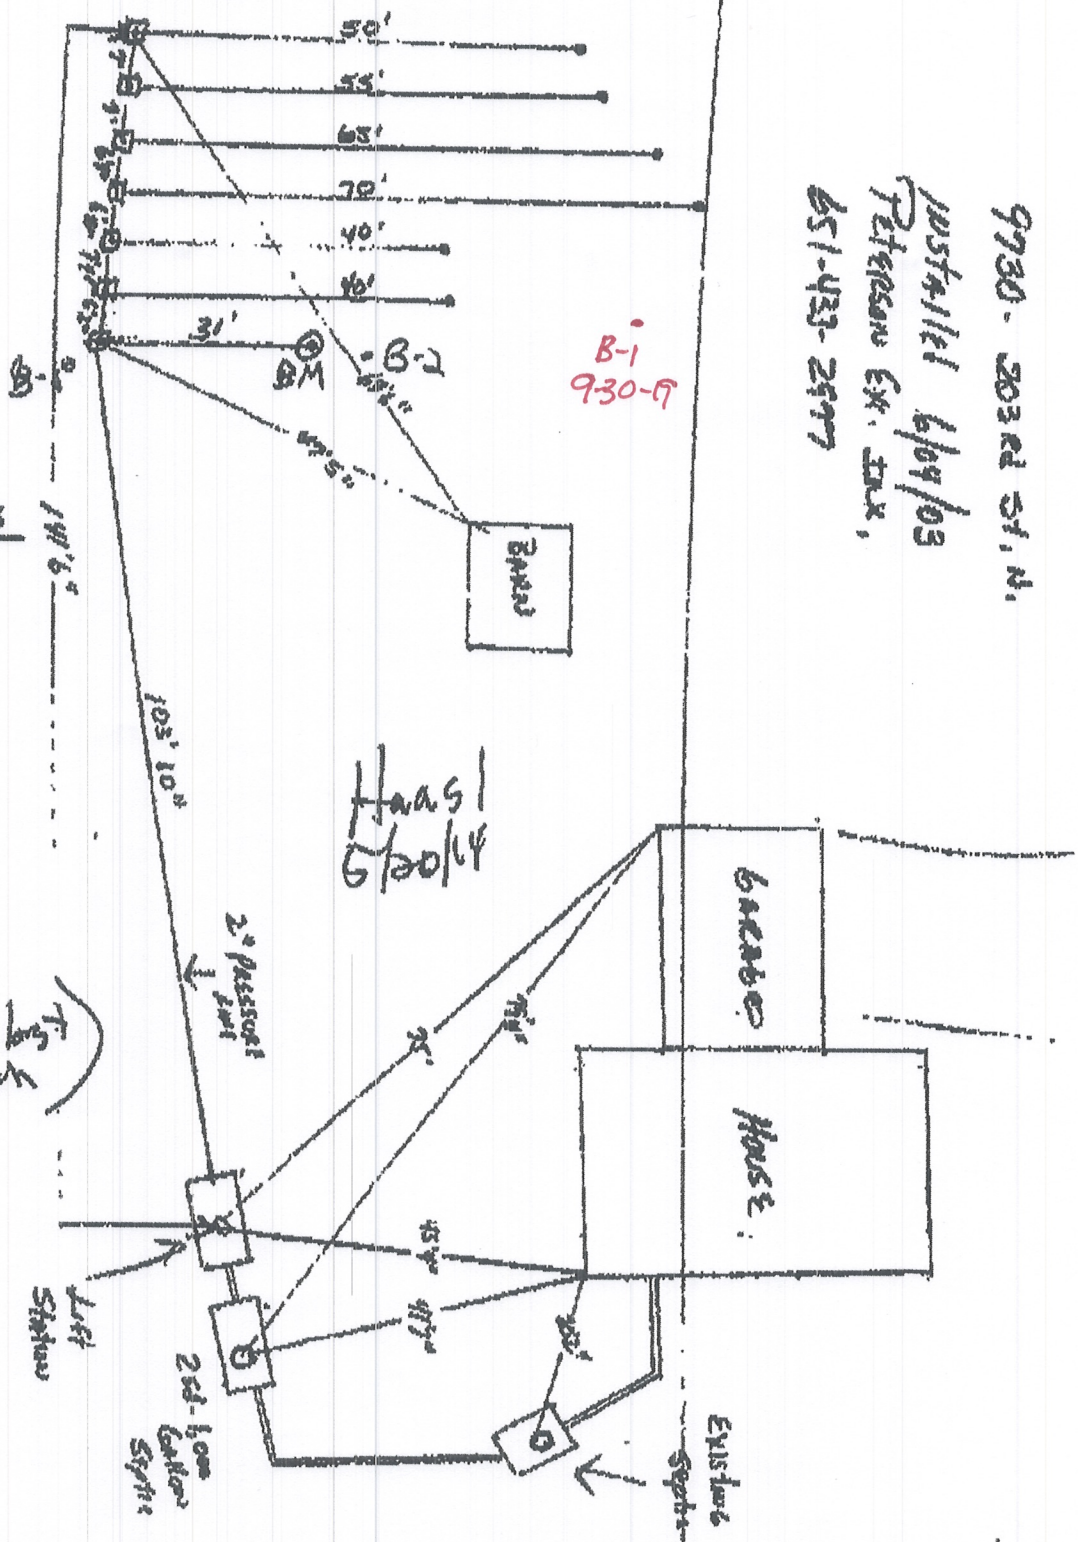 9730- 203rd St. N.
Installed 6/04/03
Peterson Ex. Inx,
651-433-2977
50'
55'
65'
70'
40'
40'
31'
B-2
B-1
9-30-19
57'5"
BARN
141'6"
103' 10"
Haasl
5/20/14
2" Pressure
Line
GARAGE
HOUSE.
75'
Lift
Station
2nd-1,000
Gallon
Septic
Existing
Septic